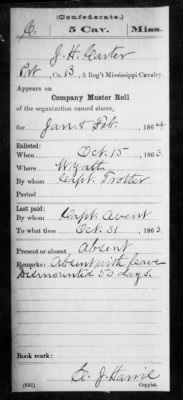 (Confederate.)
C. 5 Cav. Miss.
J. H. Carter
Pvt, Co. B, 5 Reg't Mississippi Cavalry.
Appears on
Company Muster Roll
of the organization named above,
for Jan & Feb, 1864
Enlisted:
When Oct. 15, 1863
Where Wyatt
By whom Capt. Trotter
Period
Last paid:
By whom Capt. Avent
To what time Oct. 31, 1863
Present or absent Absent
Remarks: Absent with leave
Dismounted 53 days.
Book mark:
E. J. Harrie
(642) Copyist.